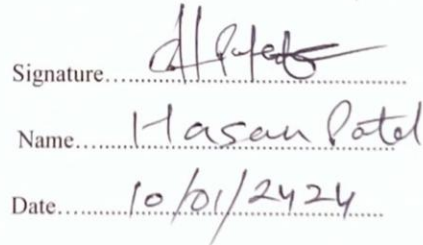 Signature.....
Name..... Hasan Patel
Date..... 10/01/2424